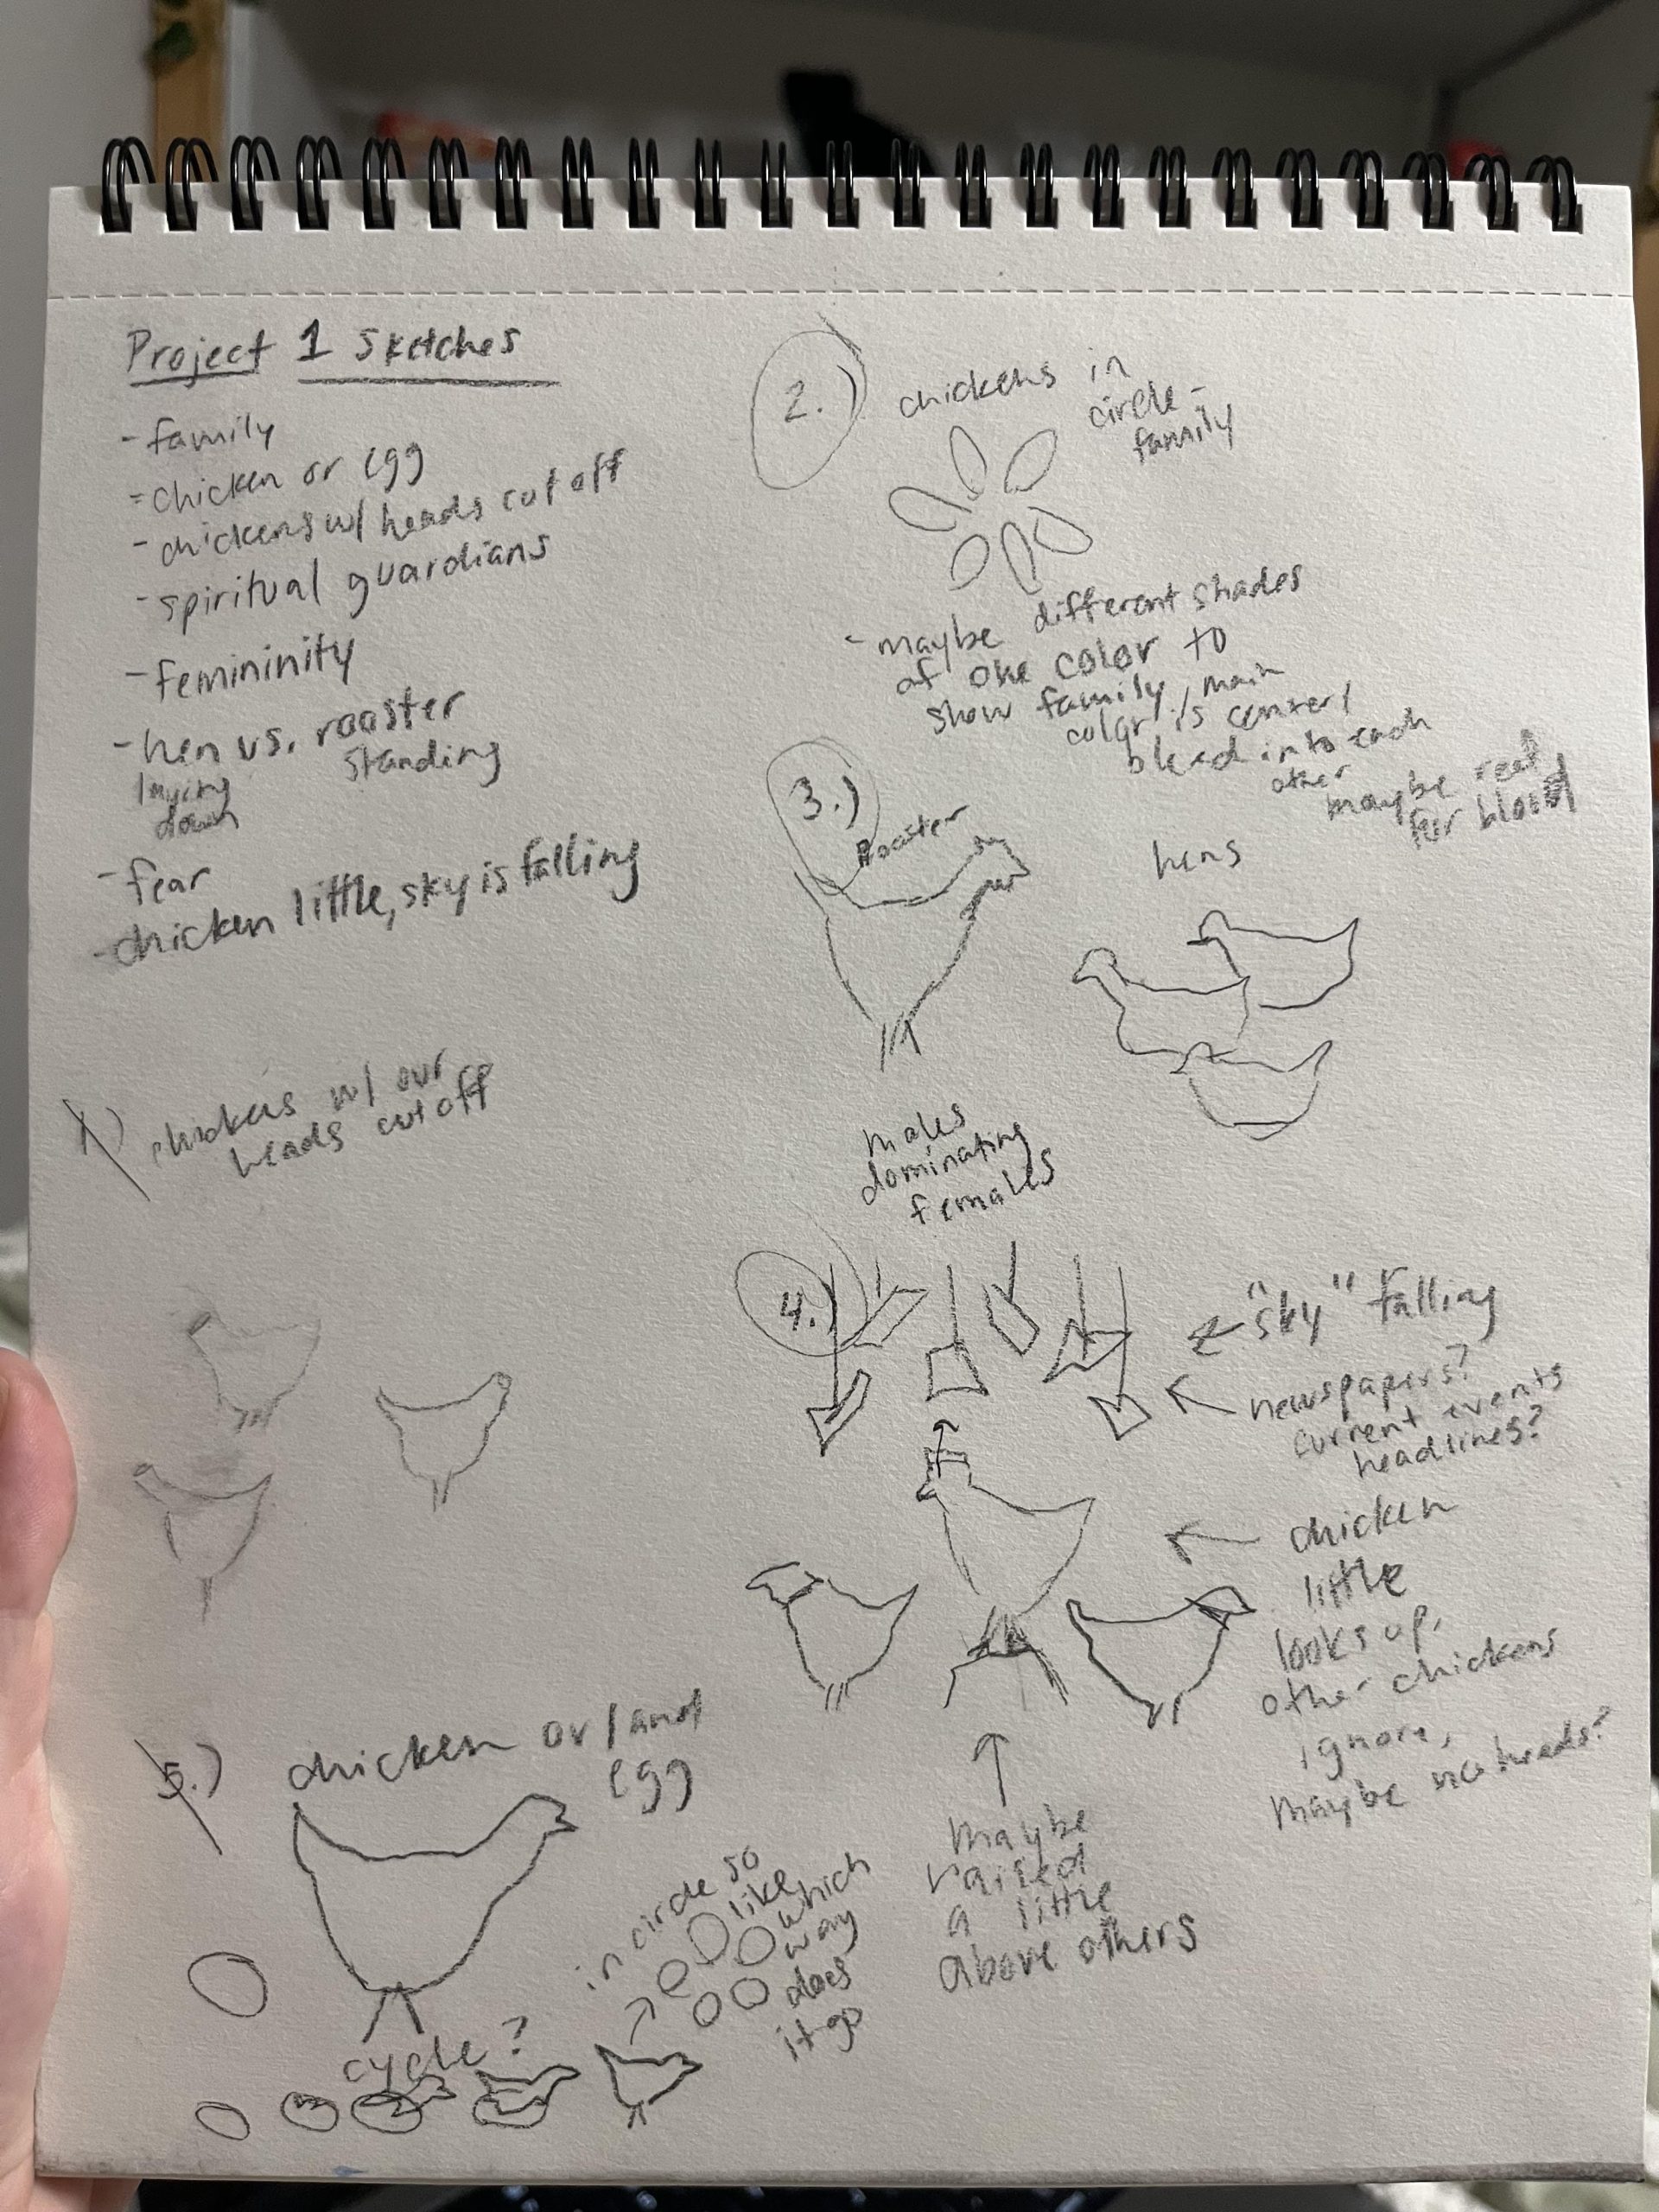 Project 1 sketches
- family
- chicken or egg
- chickens w/ heads cut off
- spiritual guardians
- femininity
- hen vs. rooster
laying down
standing
- fear
- chicken little, sky is falling
1.) chickens w/ our
heads cut off
2.) chickens in
circle -
family
- maybe different shades
of one color to
show family, main
color is center,
bleed into each
other
maybe red
for blood
3.)
Rooster
hens
males
dominating
females
4.)
"sky" falling
newspapers?
current events
headlines?
chicken
little
looks up,
other chickens
ignore,
maybe no heads?
maybe
raised
a little
above others
5.) chicken or/and
egg
cycle?
in circle so
like
which
way
does
it go